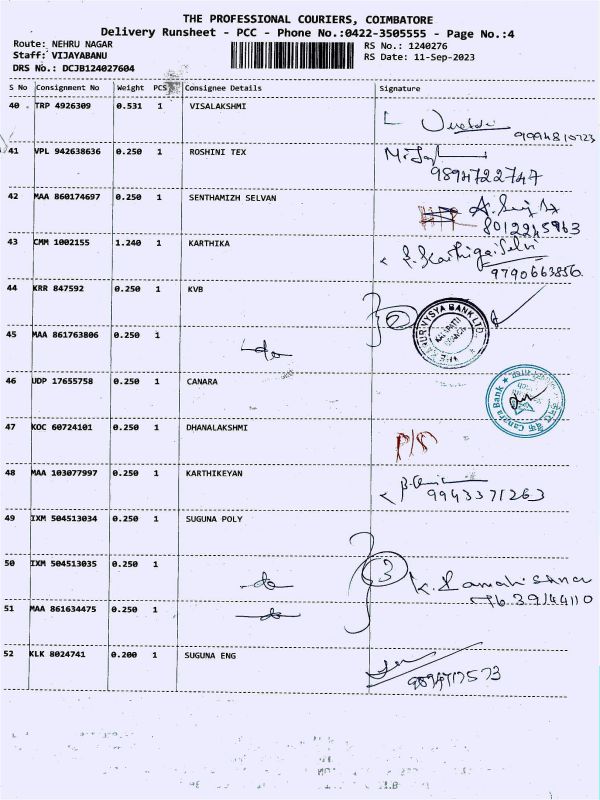 THE PROFESSIONAL COURIERS, COIMBATORE
Delivery Runsheet - PCC - Phone No.:0422-3505555 - Page No.:4
Route: NEHRU NAGAR RS No.: 1240276
Staff: VIJAYABANU RS Date: 11-Sep-2023
DRS No.: DCJB124027604
S No Consignment No Weight PCS Consignee Details Signature
40 TRP 4926309 0.531 1 VISALAKSHMI
9994810723
41 VPL 942638636 0.250 1 ROSHINI TEX
9894722747
42 MAA 860174697 0.250 1 SENTHAMIZH SELVAN
8012245963
43 CMM 1002155 1.240 1 KARTHIKA
9790663856
44 KRR 847592 0.250 1 KVB
2 KARUR VYSYA BANK LTD.
45 MAA 861763806 0.250 1 -do-
46 UDP 17655758 0.250 1 CANARA
Canara Bank
47 KOC 60724101 0.250 1 DHANALAKSHMI
48 MAA 103077997 0.250 1 KARTHIKEYAN
9943371263
49 IXM 504513034 0.250 1 SUGUNA POLY
50 IXM 504513035 0.250 1 -do- 3
7639144110
51 MAA 861634475 0.250 1 -do-
52 KLK 8024741 0.200 1 SUGUNA ENG